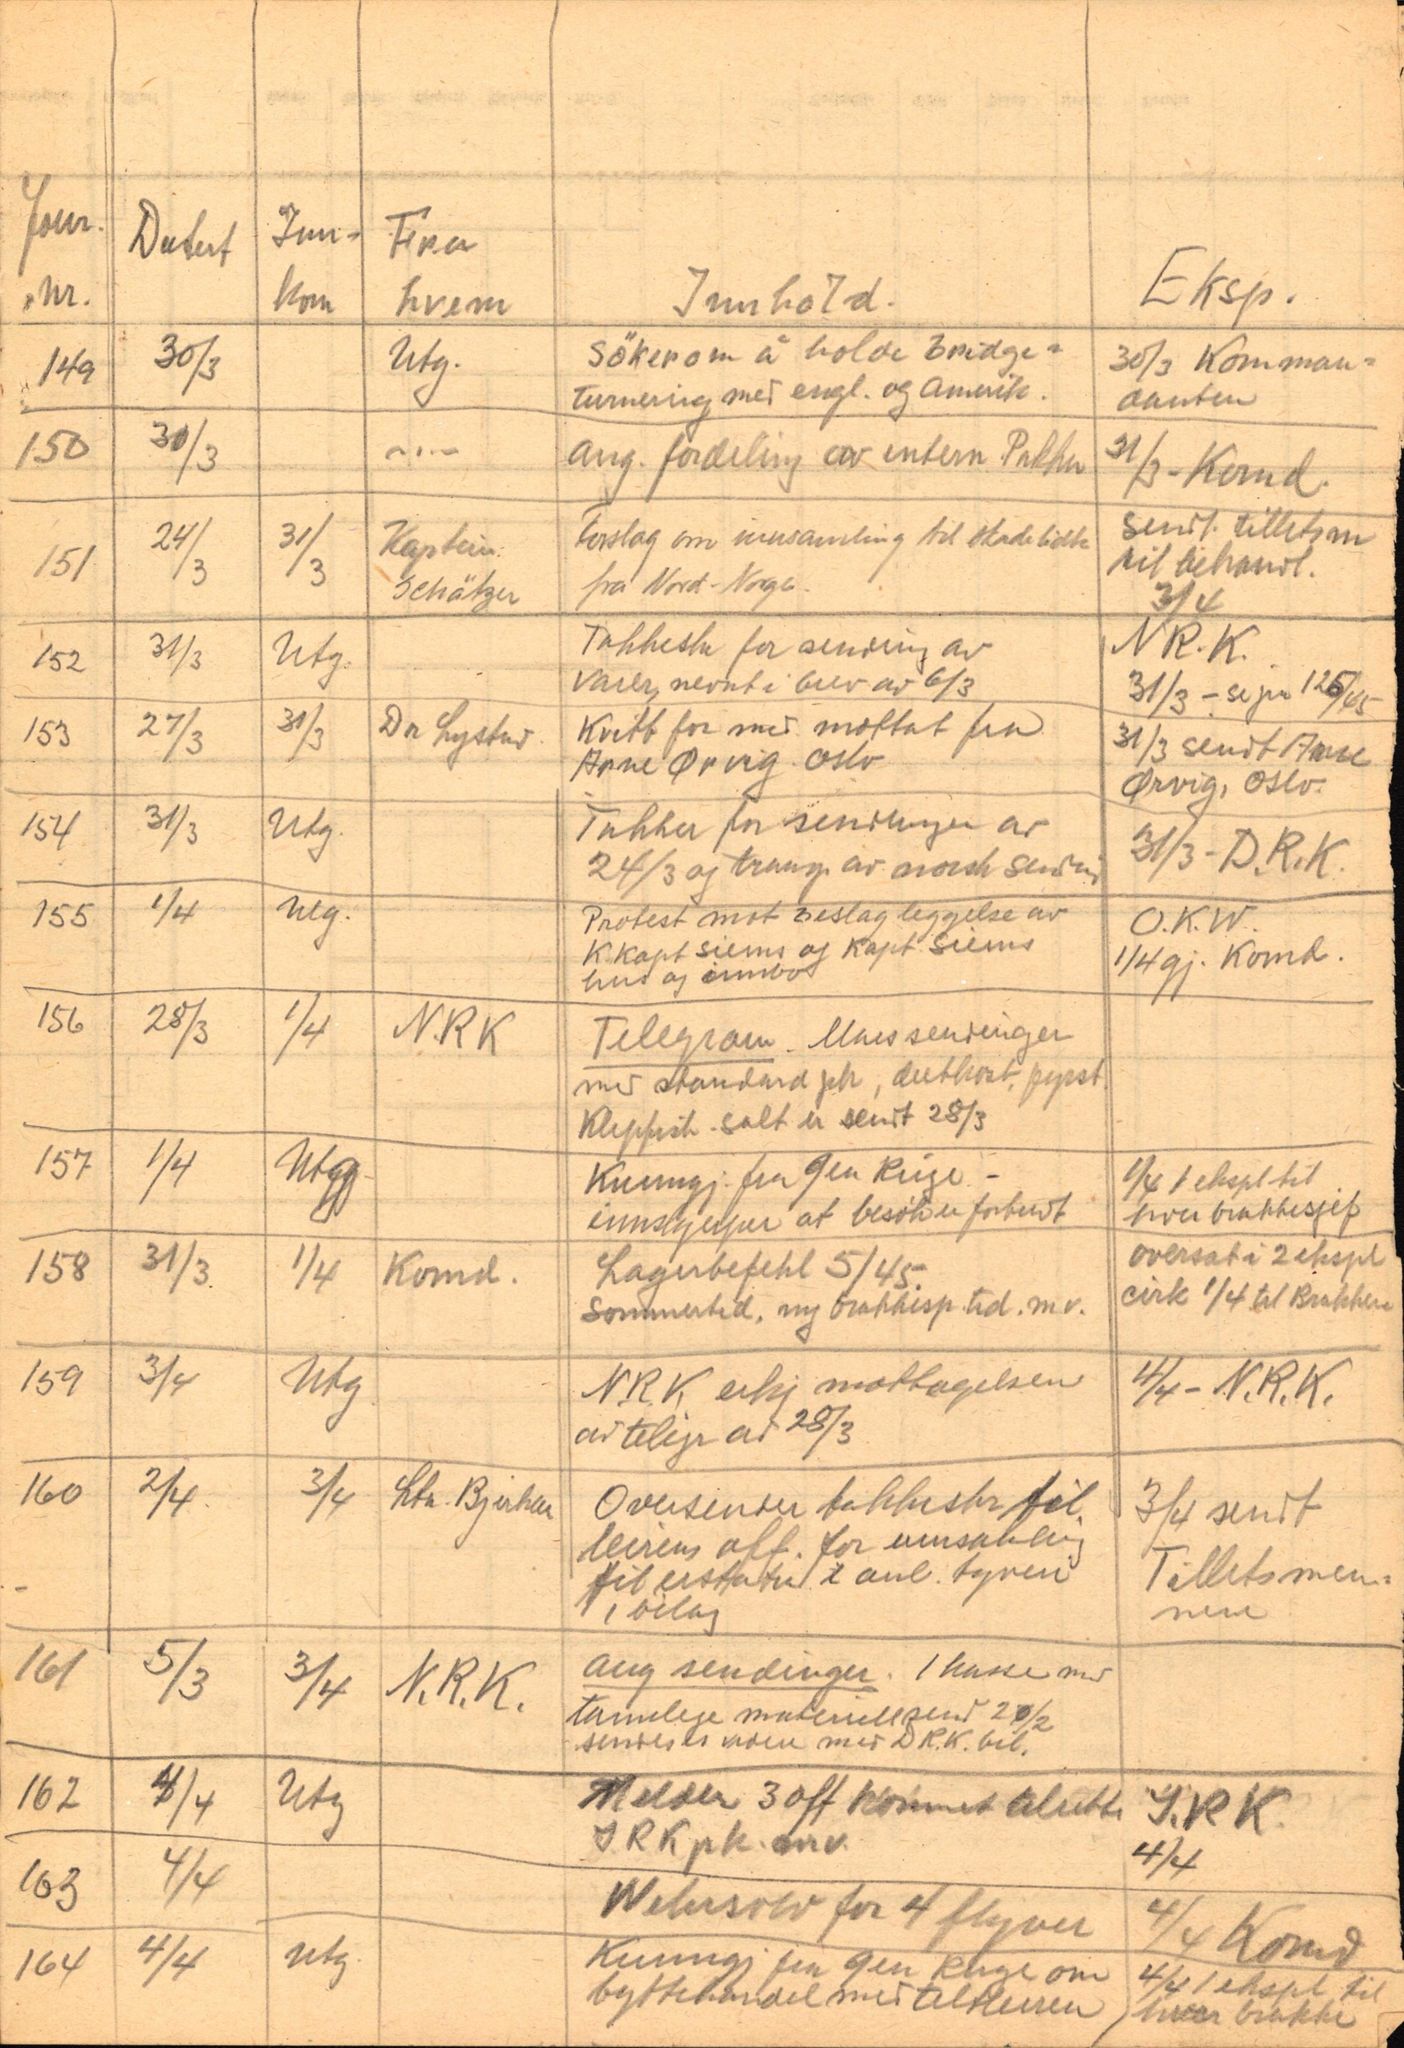 Jour. Nr. Datert Inn-kom Fra hvem Innhold. Eksp.
149 30/3 Utg. Söker om å holde Bridge= 30/3 Komman=
turnering med engl. og Amerik. danten
150 30/3 -"- Ang. fordeling av intern Pakker 31/3 - Komd.
151 24/3 31/3 Kaptein Forslag om innsamling til skadelidte Sendt tillitsm
Schätzer fra Nord-Norge. til behandl.
3/4
152 31/3 Utg. Takkeskr for sending av N.R.K.
varer, nevnt i brev av 6/3 31/3 - se jnr 126/45
153 27/3 31/3 Dr Lystad. Kvitt for med. mottat fra 31/3 sendt Arne
Arne Ørvig Oslo Ørvig, Oslo.
154 31/3 Utg. Takker for sendinger av
24/3 og av norsk 31/3 - D.R.K.
155 1/4 Utg. Protest mot beslagleggelse av O.K.W.
K.Kapt Siems og Kapt Siems 1/4 gj. Komd.
hus og innbo
156 28/3 1/4 N.R.K Telegram. sendinger
med standard pk,
Klippfisk salt er sendt 28/3
157 1/4 Utg. Kunngj. fra Gen Ruge - 1/4 1 ekspl til
at besök er forbudt hver brakkesjef
158 31/3 1/4 Komd. Lagerbefehl 5/45. oversat i 2 ekspl
Sommertid. ny brakkesp.tid. m.v. cirk 1/4 til Brakkene
159 3/4 Utg N.R.K, erkj mottagelsen 4/4 - N.R.K.
av telegr av 28/3
160 2/4. 3/4 Ltn. Oversender takkeskr til 3/4 sendt
leirens off. for innsamling Tillitsmen=
til anl. tyveri nene
1 bilag
161 5/3 3/4 N.R.K. Ang sendinger. 1 kasse med
tannlege materiell send
sendes med D.R.K. bil.
162 4/4 Utg Melder 3 off kommet I.R.K.
I R K pk. m.v. 4/4
163 4/4 Wehrsold for 4 flyver 4/4 Komd
164 4/4 Utg. Kunngj fra Gen Ruge om 4/4 1 ekspl til
byttehandel med teltleiren hver brakke